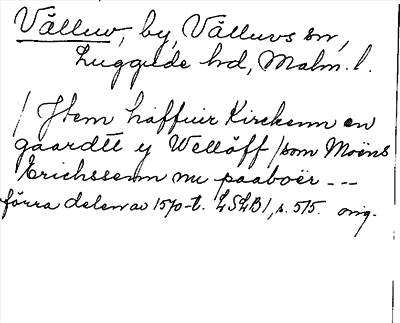 Välluv, by, Välluvs sn,
Luggude hd, Malm. l.
/ Jtem haffuer Kirckenn en
gaardtt y Wellöff / som Moëns
Erichssenn nu paaboër ---
förra delen av 1570-t. LSLB1, s. 515. orig.